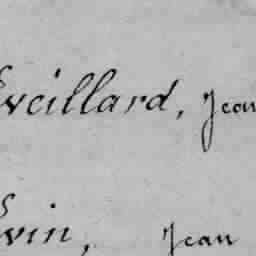 Eveillard, Jean
Evin, Jean